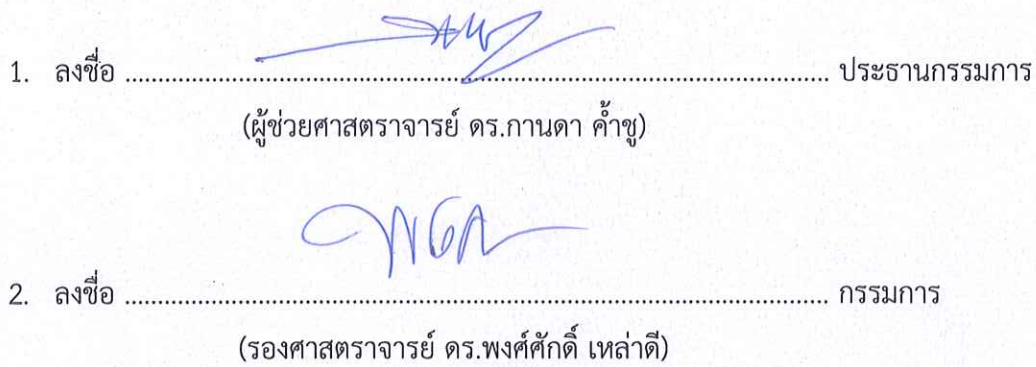 1. ลงชื่อ ........................................................................................................ ประธานกรรมการ
(ผู้ช่วยศาสตราจารย์ ดร.กานดา ค้ำชู)
2. ลงชื่อ ........................................................................................................ กรรมการ
(รองศาสตราจารย์ ดร.พงศ์ศักดิ์ เหล่าดี)